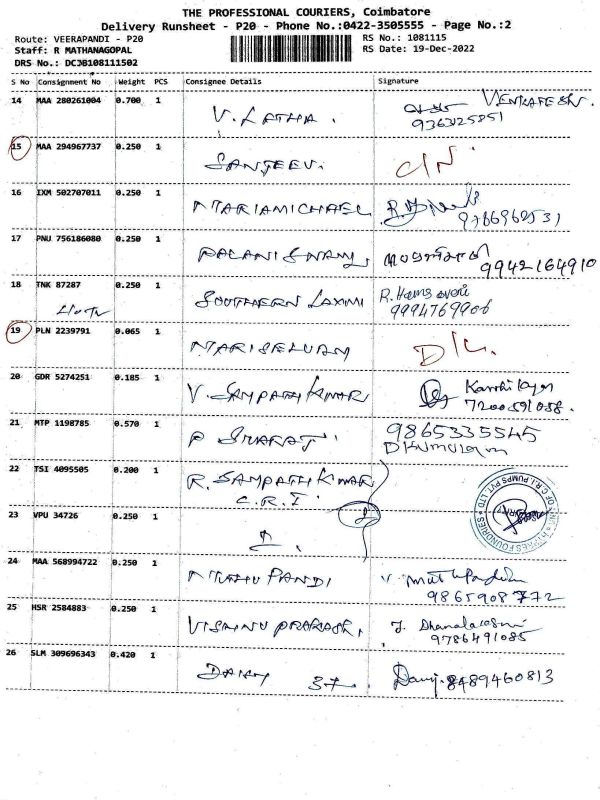 THE PROFESSIONAL COURIERS, Coimbatore
Delivery Runsheet - P20 - Phone No.:0422-3505555 - Page No.:2
Route: VEERAPANDI - P20 RS No.: 1081115
Staff: R MATHANAGOPAL RS Date: 19-Dec-2022
DRS No.: DCJB108111502
S No Consignment No Weight PCS Consignee Details Signature
14 MAA 280261004 0.700 1 V. LATHA. VENKATESH.
9363125851
15 MAA 294967737 0.250 1 SANJEEV. C/N.
16 IXM 502707011 0.250 1 MARIAMICHAEL
9786962531
17 PNU 756186080 0.250 1 PALANISWAMY
9942164910
18 TNK 87287 0.250 1 SOUTHERN LAXMI R. Hamsaveni
9994769906
19 PLN 2239791 0.065 1 MARISELVAM D/L.
20 GDR 5274251 0.185 1 V. SAMPATH KUMAR
7200591088.
21 MTP 1198785 0.570 1 P 9865335545
22 TSI 4095505 0.200 1 R. SAMPATH KUMAR
C.R.I.
23 VPU 34726 0.250 1
24 MAA 568994722 0.250 1 MUTHU PANDI V.
9865908772
25 HSR 2584883 0.250 1 VISHNU PRAKASH. J. Dhanalakshmi
9786491085
26 SLM 309696343 0.420 1 DAISY 37. 8489460813